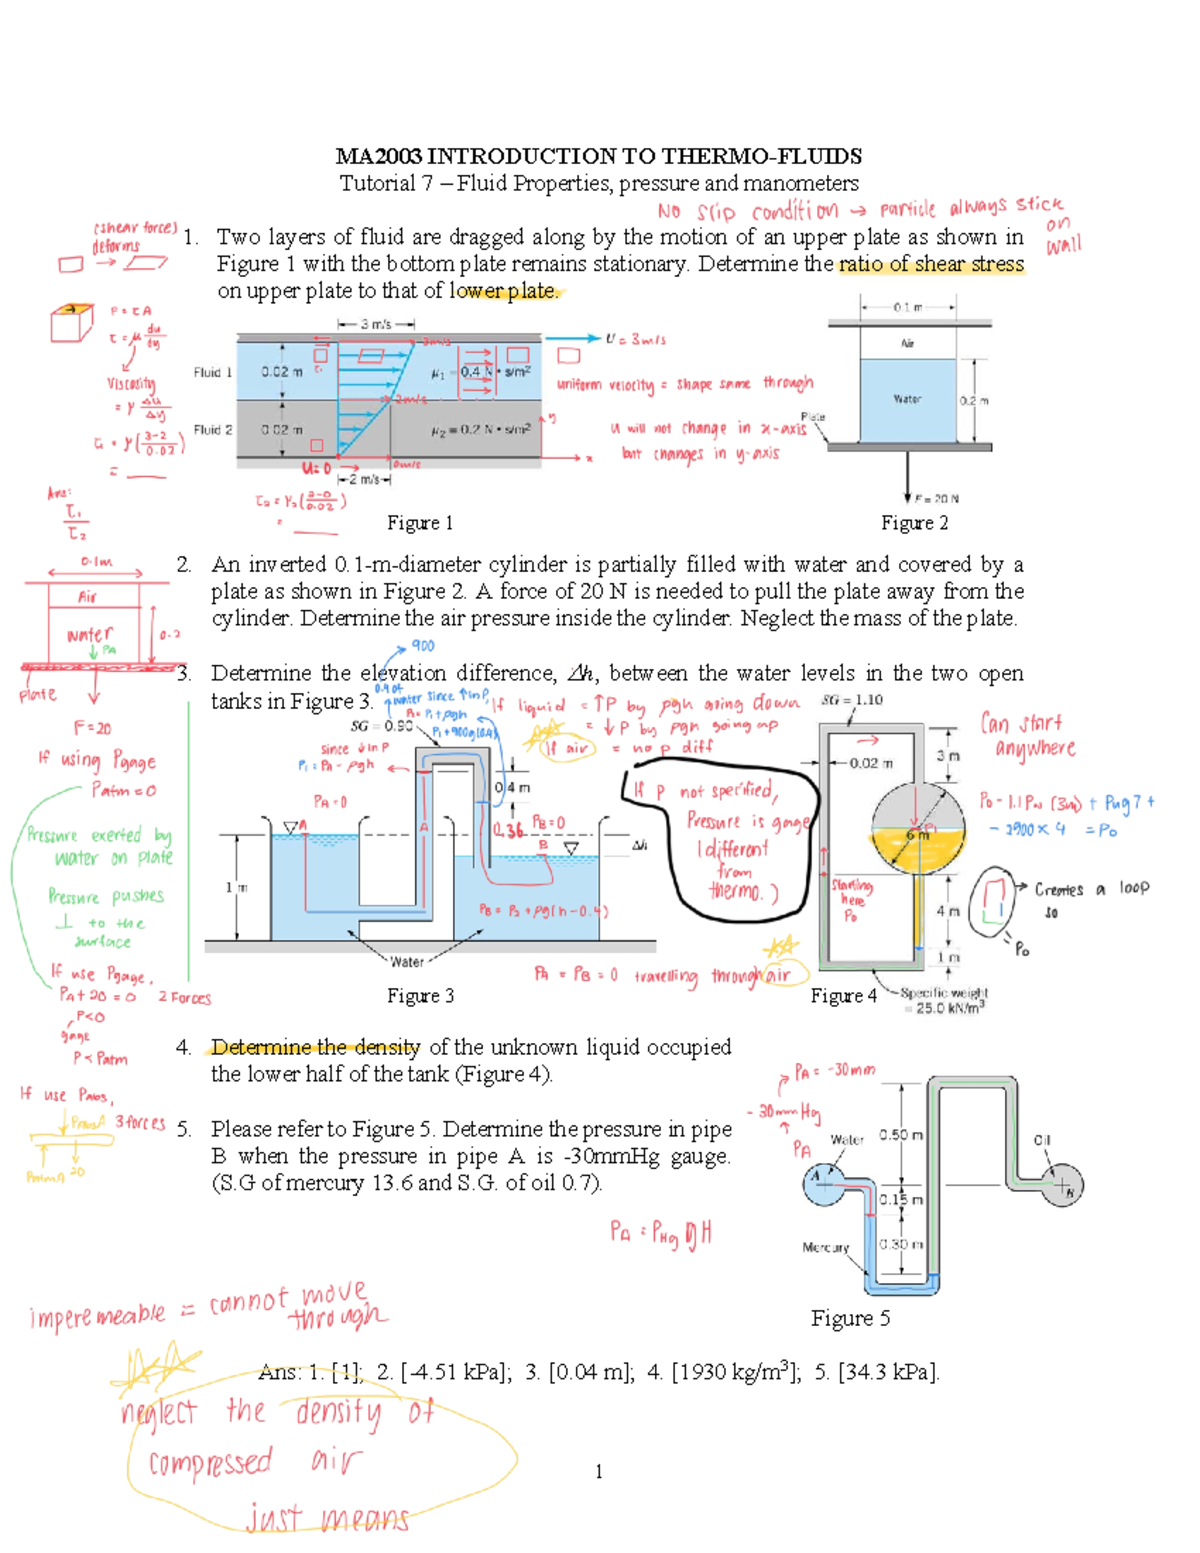 MA2003 INTRODUCTION TO THERMO-FLUIDS
Tutorial 7 – Fluid Properties, pressure and manometers
No slip condition → particle always stick
on
wall
(shear force)
deforms
1. Two layers of fluid are dragged along by the motion of an upper plate as shown in
Figure 1 with the bottom plate remains stationary. Determine the ratio of shear stress
on upper plate to that of lower plate.
F = τA
τ = μ du/dy
Viscosity
= μ Δu/Δy
τ₁ = μ (3-2/0.02)
= ___
Ans:
τ₁/τ₂
3 m/s
3m/s
U = 3m/s
Fluid 1
0.02 m
τ₁
μ₁ = 0.4 N • s/m²
2m/s
Fluid 2
0.02 m
μ₂ = 0.2 N • s/m²
y
x
U=0
0m/s
2 m/s
τ₂ = μ₂ (2-0/0.02)
= ___
uniform velocity = shape same through
u will not change in x-axis
but changes in y-axis
Figure 1
0.1 m
Air
Water
0.2 m
Plate
F = 20 N
Figure 2
2. An inverted 0.1-m-diameter cylinder is partially filled with water and covered by a
plate as shown in Figure 2. A force of 20 N is needed to pull the plate away from the
cylinder. Determine the air pressure inside the cylinder. Neglect the mass of the plate.
0.1m
Air
water
PA
0.2
plate
F=20
If using Pgage
Patm=0
Pressure exerted by
water on plate
Pressure pushes
⊥ to the
surface
If use Pgage,
PA+20=0 2 Forces
P<0
gage
P<Patm
If use Pabs,
PabsA 3 forces
PatmA 20
3. Determine the elevation difference, Δh, between the water levels in the two open
tanks in Figure 3.
900
water since ↑ in P,
P₁+900g(0.4)
SG = 0.90
since ↓ in P
P₁ = PA - ρgh
If liquid = ↑P by ρgh going down
= ↓P by ρgh going up
If air = no p diff
0.4 m
0.36
PA=0
A
A
PB=0
B
Δh
1 m
PB = P₂ + ρg(h-0.4)
Water
PA = PB = 0 travelling through air
Figure 3
If P not specified,
Pressure is gauge
(different
from
thermo.)
SG = 1.10
0.02 m
3 m
6 m
4 m
1 m
Starting
here
Po
Specific weight
= 25.0 kN/m³
Can start
anywhere
- 2900×4 = Po
Creates a loop
so
= Po
Figure 4
4. Determine the density of the unknown liquid occupied
the lower half of the tank (Figure 4).
5. Please refer to Figure 5. Determine the pressure in pipe
B when the pressure in pipe A is -30mmHg gauge.
(S.G of mercury 13.6 and S.G. of oil 0.7).
PA = -30mm
- 30mmHg
PA
PA = PHg g H
Water
0.50 m
Oil
A
B
0.15 m
Mercury
0.30 m
Figure 5
impermeable = cannot move
through
Ans: 1. [1]; 2. [-4.51 kPa]; 3. [0.04 m]; 4. [1930 kg/m³]; 5. [34.3 kPa].
neglect the density of
compressed air
just means
1